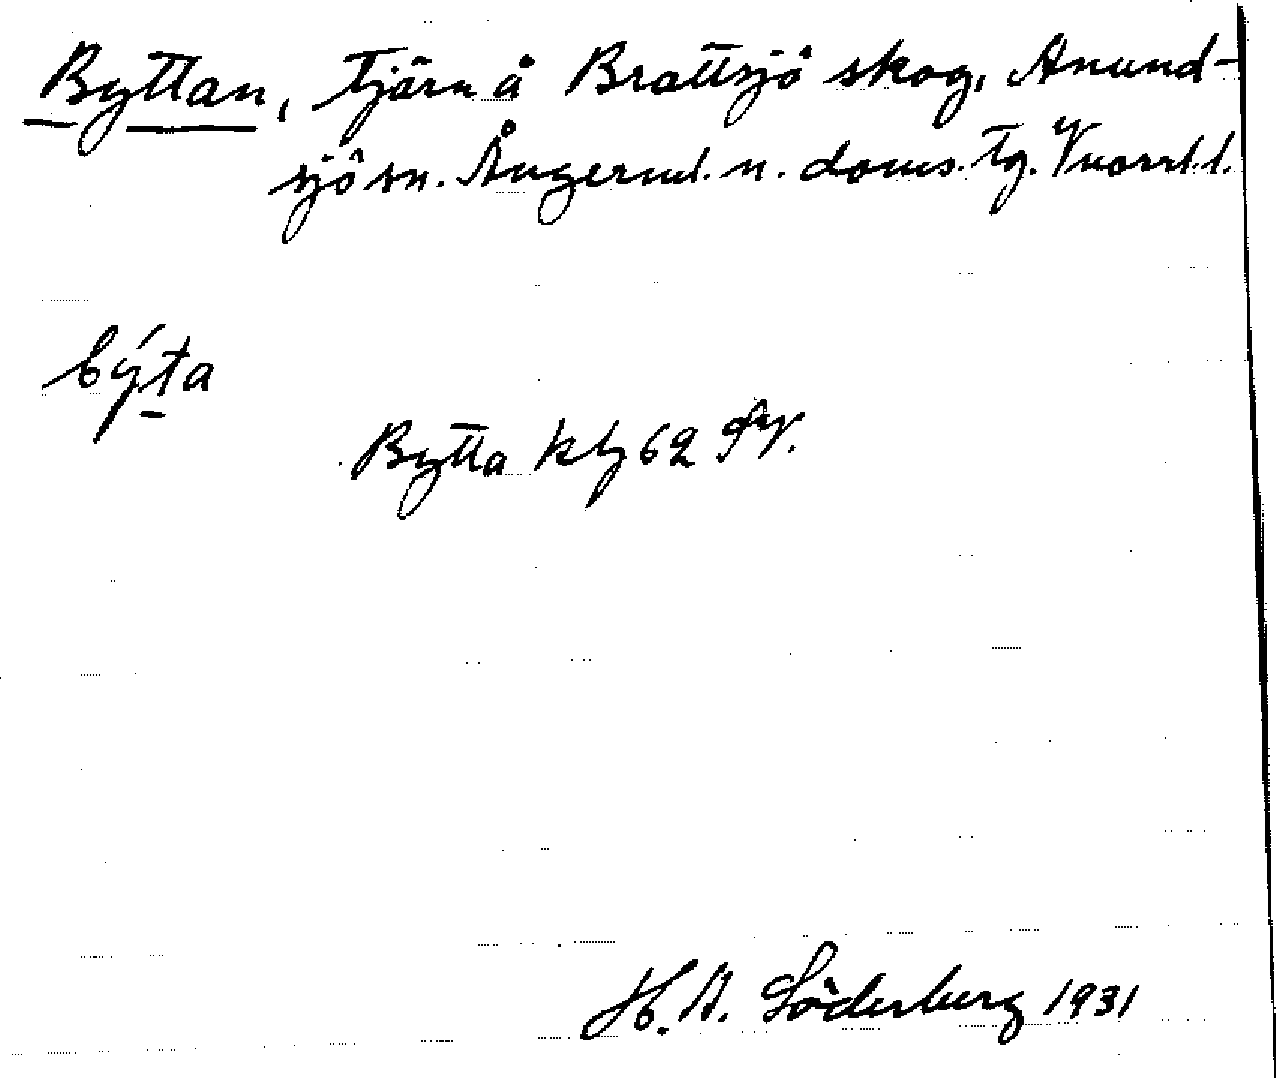 Byttan, tjärn å Brattsjö skog, Anund-
sjö sn. Ångerml. n. doms. tg. Vnorrl. l.
býta
Bytta kbl 62 SV.
H. A. Söderberg 1931